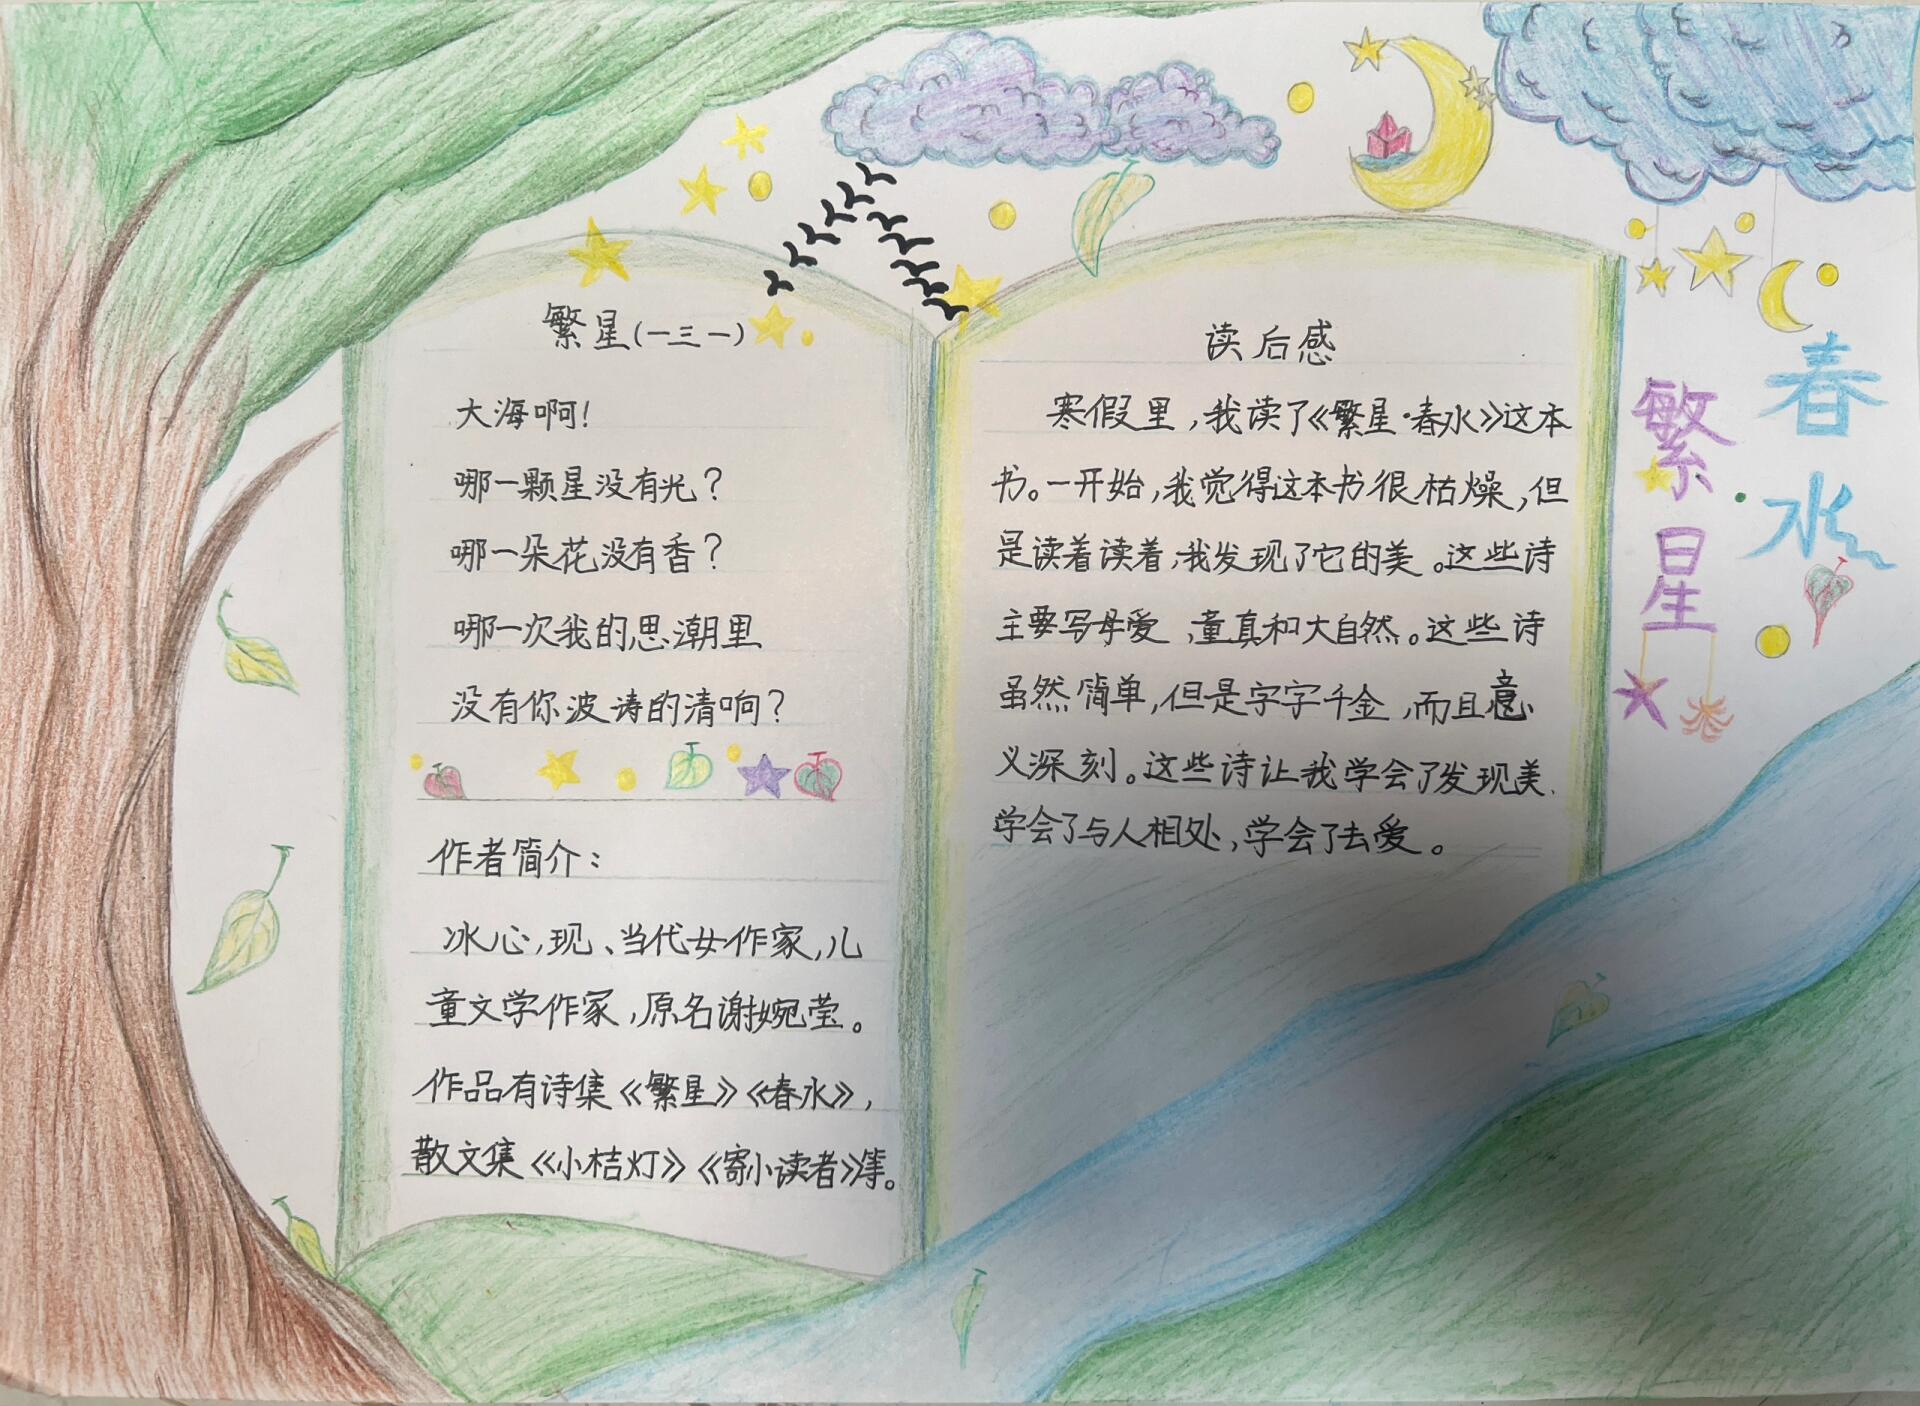 繁星(一三一)
大海啊!
哪一颗星没有光?
哪一朵花没有香?
哪一次我的思潮里
没有你波涛的清响?
作者简介:
冰心,现、当代女作家,儿
童文学作家,原名谢婉莹。
作品有诗集《繁星》《春水》,
散文集《小桔灯》《寄小读者》等。
读后感
寒假里,我读了《繁星·春水》这本
书。一开始,我觉得这本书很枯燥,但
是读着读着,我发现了它的美。这些诗
主要写母爱,童真和大自然。这些诗
虽然简单,但是字字千金,而且意
义深刻。这些诗让我学会了发现美.
学会了与人相处,学会了去爱。
繁星
春水